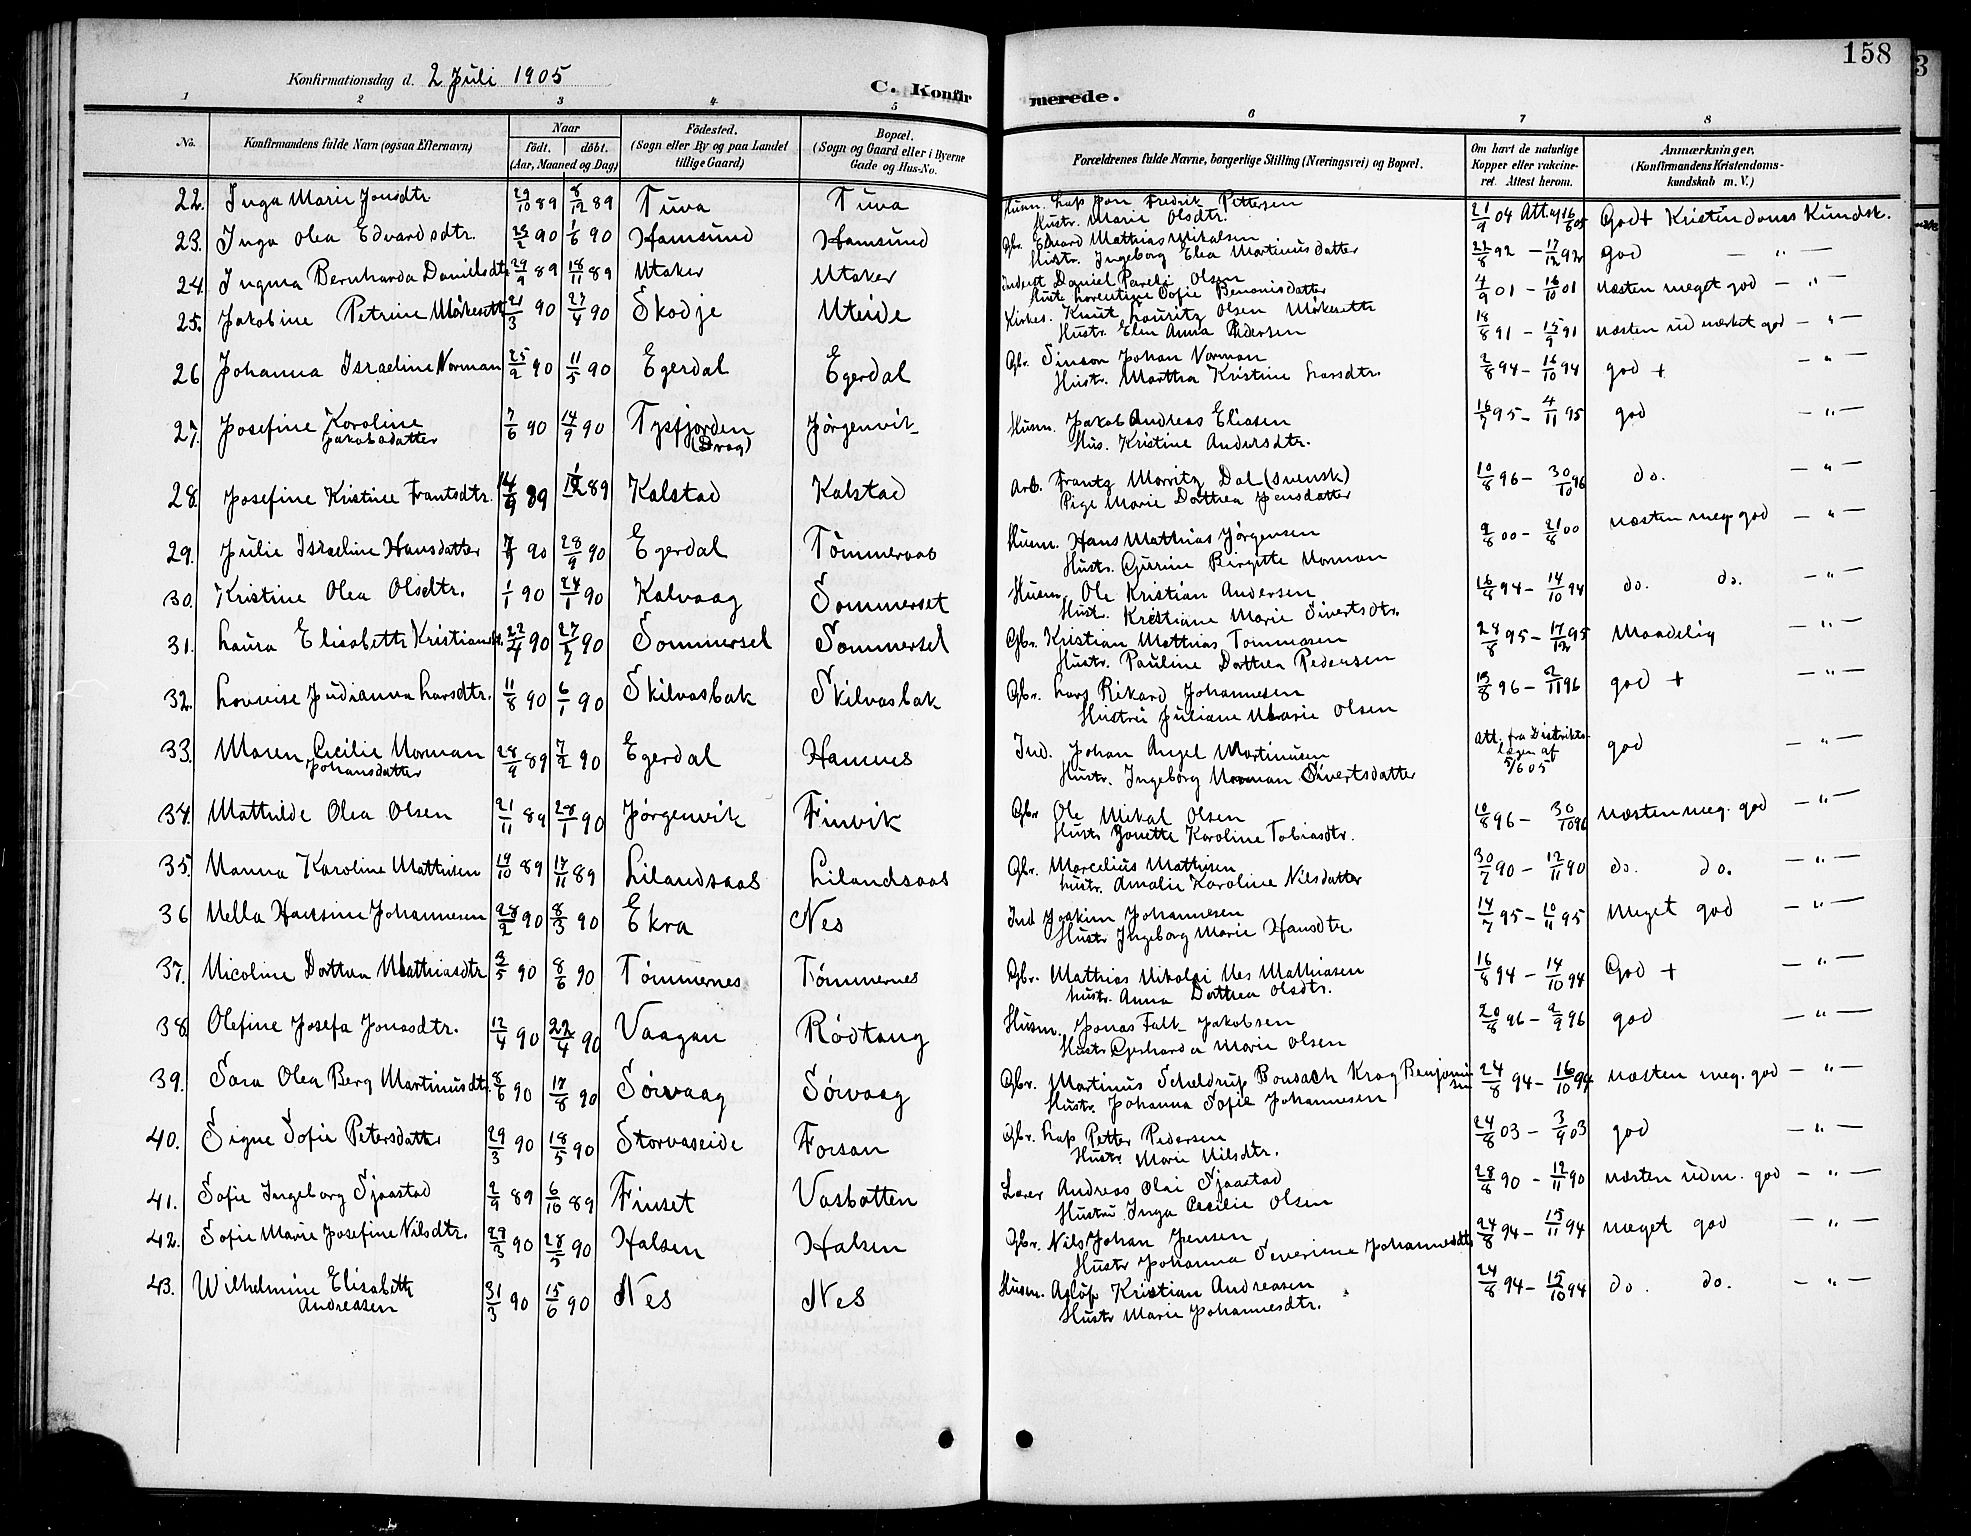 158
Konfirmationsdag d. 2 Juli 1905
C. Konfir merede.
1 2 3 4 5 6 7 8
No. Konfirmandens fulde Navn (ogsaa Efternavn) Naar födt. döbt. (Aar, Maaned og Dag) Födested. (Sogn eller By og paa Landet tillige Gaard) Bopæl. (Sogn og Gaard eller i Byerne Gade og Hus-No. Forældrenes fulde Navne, borgerlige Stilling (Næringsvei) og Bopæl. Om havt de naturlige Kopper eller vakcineret. Attest herom. Anmærkninger. (Konfirmandens Kristendomskundskab m. V.)
22. Inga Marie Jonsdtr 29/10 89 8/12 89 Tuva Tuva Husm. Lap Jon Fredrik Pettersen
Hustr. Marie Olsdtr. 21/9 04 Att. af 16/6 05 God + Kristendoms Kundsk.
23. Inga Olea Edvardsdtr. 25/2 90 1/6 90 Hamsund Hamsund Gbr. Edvard Mathias Mikalsen
Hustr. Ingeborg Elea Martinusdatter 22/8 92 – 17/12 92 god — " —
24. Ingma Bernharda Danielsdtr 29/9 89 18/11 89 Utaker Utaker Inderst Daniel Pareli Olsen
Hust. Lorentine Sofie Benonisdatter 4/9 01 – 16/10 01 næsten meget god — " —
25. Jakobine Petrine Mörkesett 21/3 90 27/4 90 Skodje Uteide Kirkes. Knut Lauritz Olsen Mörkesett
Hustr. Elen Anna Pedersen 18/8 91 – 15/9 91 næsten udmærket god — " —
26 Johanna Israeline Norman 25/2 90 11/5 90 Egerdal Egerdal Gbr. Simon Johan Norman
Hustr. Marthea Kristine Larsdtr. 2/8 94 – 16/10 94 god + — " —
27. Josefine Karoline
Jakobsdatter 7/6 90 14/9 90 Tysfjorden
(Drag) Jørgenvik Husm. Jakob Andreas Eliasen
Hus. Kristine Andersdtr. 16/7 95 – 4/11 95 god — " —
28. Josefine Kristine Frantsdtr. 89 89 Kalstad Kalstad Arb. Frantz Morritz Dal (svensk)
Pige Marie Dorthea Jensdatter 10/8 96 – 30/10 96 do. — " —
29. Julie Israeline Hansdatter 90 28/9 90 Egerdal Tömmeraas Husm. Hans Mathias Jørgensen
Hustr. Gurine Birgitte Norman 9/8 00 – 21/8 00 næsten meg. god — " —
30. Kristine Olea Olsdtr. 1/1 90 24/1 90 Kalvaag Sommerset Husm. Ole Kristian Andersen
Hust. Kristiane Marie Sivertsdtr. 16/8 94 – 14/10 94 do. do. — " —
31. Laura Elisabeth Kristiansdtr. 22/4 90 27/7 90 Sommersel Sommersel Gbr. Kristian Mathias Tommasen
Hustr. Pauline Dorthea Pedersen 24/8 95 – 17/12 95 Maadelig — " —
32. Lovvise Judianna Larsdtr. 11/8 90 6/1 90 Skilvasbak Skilvasbak Gbr. Lars Rikard Johannesen
Hustru Juliane Marie Olsen 13/8 96 – 2/11 96 god + — " —
33. Maren Cecilie Norman
Johansdatter 28/9 89 7/2 90 Egerdal Hamnes Ind. Johan Angel Martinusen
Hustr. Ingeborg Norman Sivertsdatter Att. fra Distriktslægen af 5/6 05 god — " —
34. Mathilde Olea Olsen 21/11 89 28/1 90 Jørgenvik Finvik Gbr Ole Mikal Olsen
Hustr Jonette Karoline Tobiasdtr. 10/8 96 – 30/10 96 Næsten meg. god — " —
35. Nanna Karoline Mathisen 14/10 89 17/11 89 Lilandsaas Lilandsaas Gbr. Marcelius Mathisen
hustr. Amalie Karoline Nilsdatter 30/7 90 – 12/11 90 do. do. — " —
36 Nella Hansine Johannesen 28/2 90 8/3 90 Ekra Nes Ind Joakim Johannesen
Hustr Ingeborg Marie Hansdtr. 14/7 95 – 10/11 95 Meget god — " —
37. Nicoline Dorthea Mathiasdtr 3/5 90 8/6 90 Tømmernes Tømmernes Gbr. Mathias Nikolai Nes Mathiasen
hustr. Anna Dorthea Olsdtr. 16/8 94 – 14/10 94 God + — " —
38 Olefine Josefa Jonasdtr. 12/4 90 22/4 90 Vaagan Rödtang Husm. Jonas Falk Jakobsen
Hustr Gerharda Marie Olsen 20/8 96 – 2/9 96 god — " —
39. Sara Olea Berg Martinusdtr. 8/6 90 17/8 90 Sörvaag Sörvaag Gbr. Martinus Scheldrup Bonsach Krog Benjaminsen
Hustr. Johanna Sofie Johannesen 24/8 94 – 16/10 94 næsten meg. god — " —
40. Signe Sofie Petersdatter 29/3 90 18/5 90 Storvaseide Forsan Gbr. Lap Petter Pedersen
Hustr. Marie Nilsdtr. 24/8 03 – 3/9 03 god — " —
41. Sofie Ingeborg Sjaastad 2/9 89 6/10 89 Finset Vasbotten Lærer Andreas Olai Sjaastad
Hustru Inga Cecilie Olsen 28/8 90 – 12/11 90 næsten udm. god — " —
42. Sofie Marie Josefine Nilsdtr. 29/3 90 28/5 90 Halsen Halsen Gbr. Nils Johan Jensen
Hustr Johanna Severine Johannesdtr 24/8 94 – 15/11 94 meget god — " —
43. Wilhelmine Elisabeth
Andreasen 31/3 90 15/6 90 Nes Nes Husm. Aslöp Kristian Andreasen
Hustr Marie Johannesdtr. 24/8 94 – 15/10 94 do. do. — " —